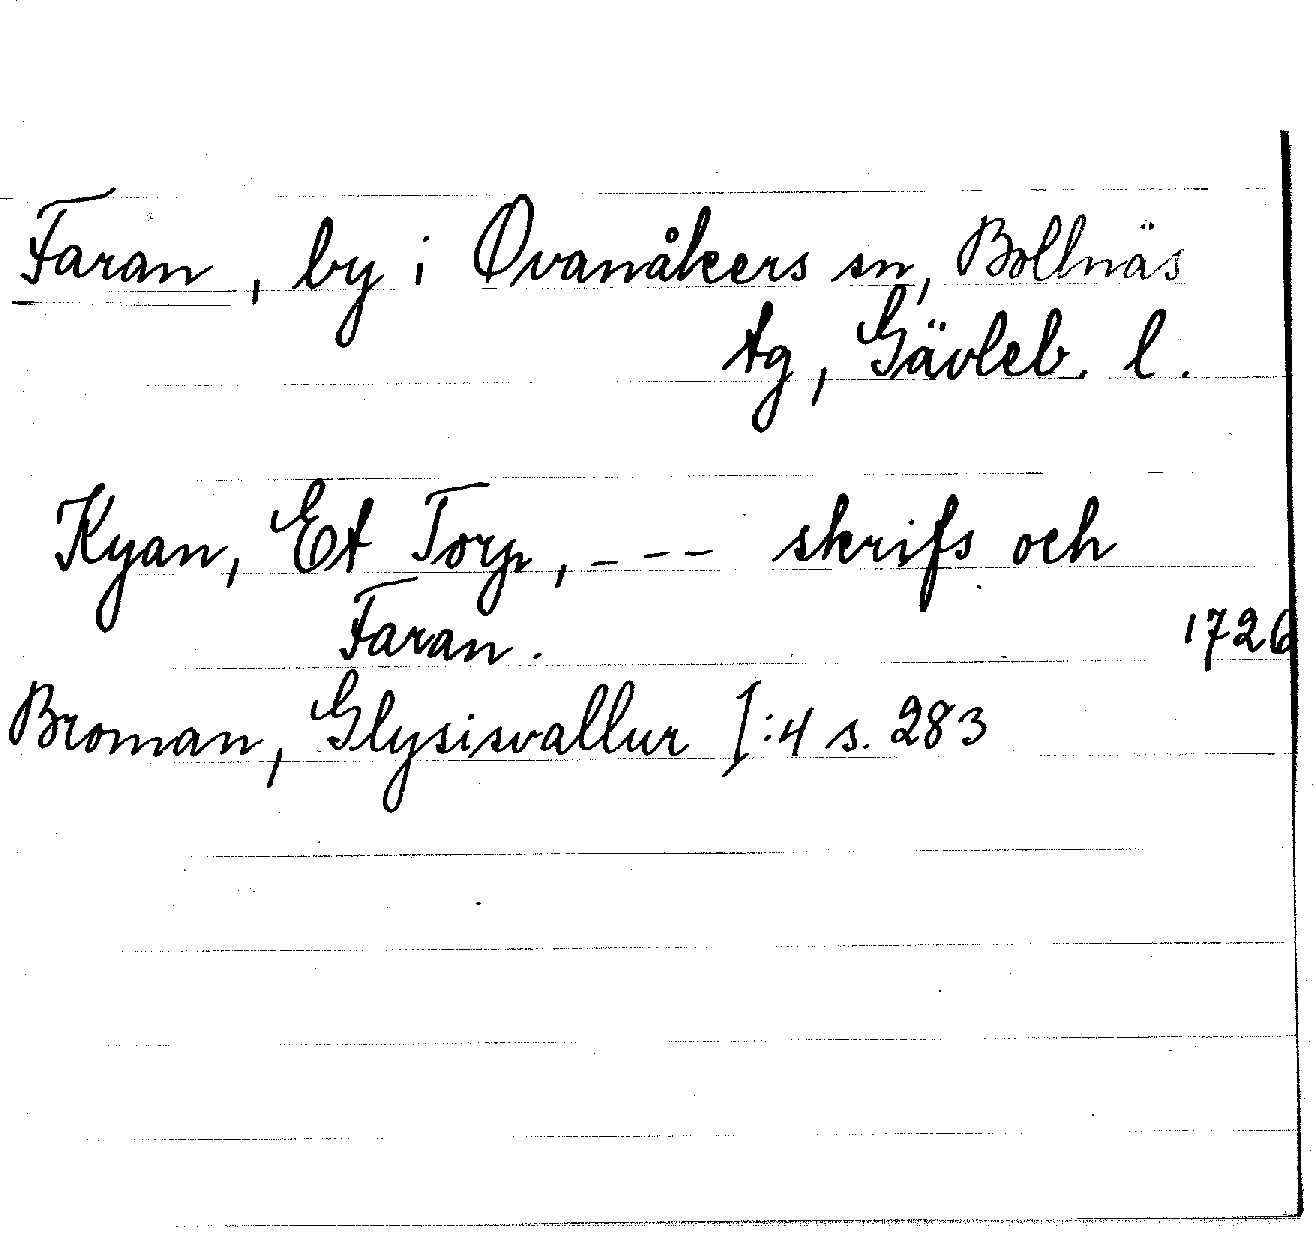 Faran, by i Ovanåkers sn, Bollnäs
tg, Gävleb. l.
Kyan, Et Torp, - - - skrifs och
Faran. 1726
Broman, Glysisvallur I:4 s. 283